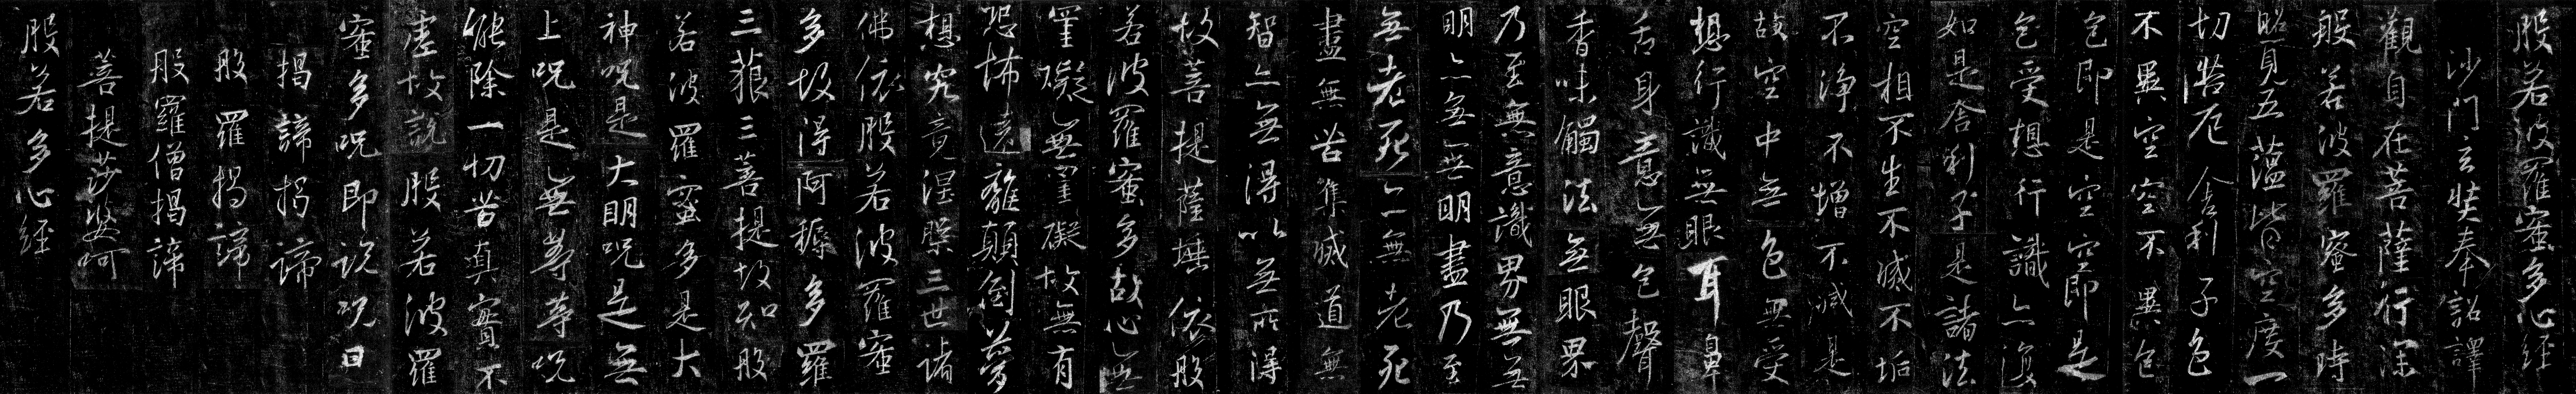 般若波羅蜜多心経
沙門玄奘奉詔譯
觀自在菩薩行深
般若波羅蜜多時
照見五蘊皆空度一
切苦厄舍利子色
不異空空不異色
色即是空空即是
色受想行識亦復
如是舍利子是諸法
空相不生不滅不垢
不淨不增不減是
故空中無色無受
想行識無眼耳鼻
舌身意無色聲
香味觸法無眼界
乃至無意識界無無
明亦無無明盡乃至
無老死亦無老死
盡無苦集滅道無
智亦無得以無所得
故菩提薩埵依般
若波羅蜜多故心無
罣礙無罣礙故無有
恐怖遠離顛倒夢
想究竟涅槃三世諸
佛依般若波羅蜜
多故得阿耨多羅
三藐三菩提故知般
若波羅蜜多是大
神呪是大明呪是無
上呪是無等等呪
能除一切苦真實不
虛故說般若波羅
蜜多呪即說呪曰
揭諦揭諦
般羅揭諦
般羅僧揭諦
菩提莎婆呵
般若多心経